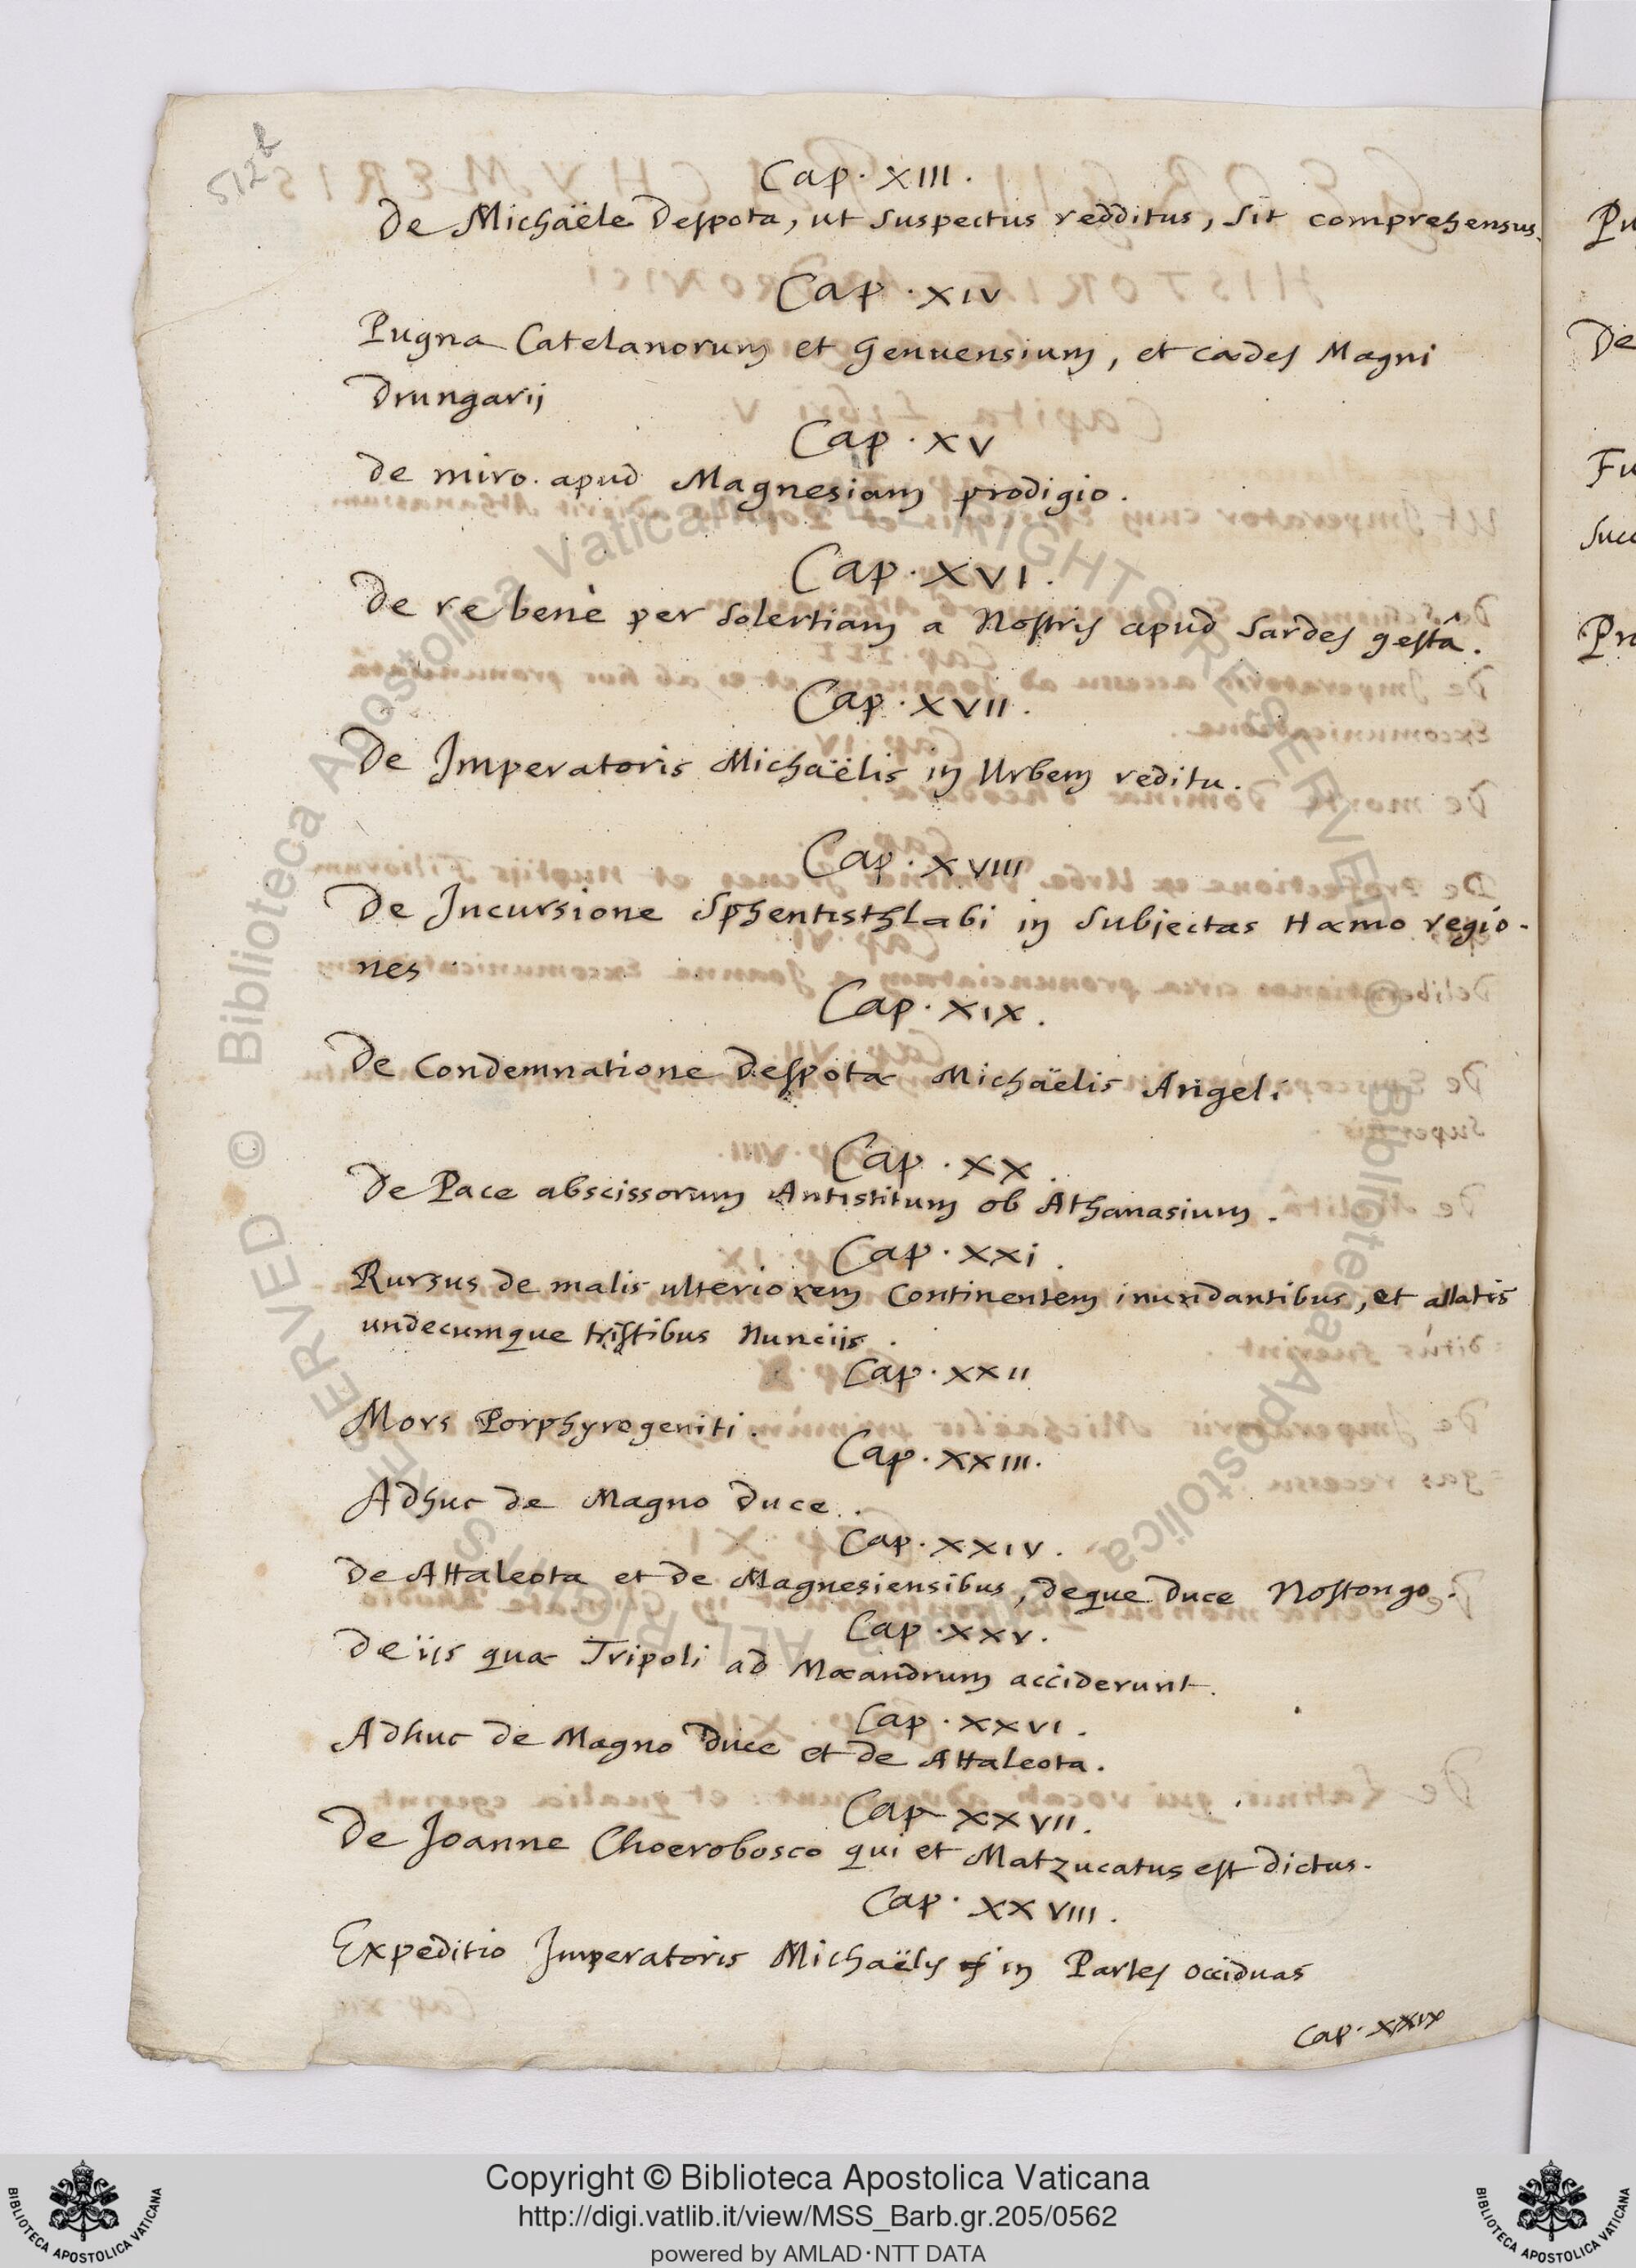 512b
Cap. XIII.
De Michaële Despota, ut suspectus redditus, sit comprehensus.
Cap. XIV
Pugna Catelanorum et Genuensium, et cædes Magni
Drungarij
Cap. XV
De miro apud Magnesiam prodigio.
Cap. XVI.
De re benè per solertiam a Nostris apud Sardes gestâ.
Cap. XVII.
De Imperatoris Michaëlis in Urbem reditu.
Cap. XVIII
De Incursione Sphentisthlabi in subjectas Hæmo regio-
nes
Cap. XIX.
De Condemnatione Despotæ Michaëlis Angeli
Cap. XX.
De Pace abscissorum Antistitum ob Athanasium.
Cap. XXI.
Rursus de malis ulteriorem Continentem inundantibus, et allatis
undecumque tristibus Nunciis.
Cap. XXII
Mors Porphyrogeniti.
Cap. XXIII.
Adhuc de Magno Duce.
Cap. XXIV.
De Attaleota et de Magnesiensibus, deque Duce Nostongo.
Cap. XXV.
De ijs quæ Tripoli ad Mæandrum acciderunt.
Cap. XXVI.
Adhuc de Magno Duce et de Attaleota.
Cap XXVII.
De Joanne Choerobosco qui et Matzucatus est dictus.
Cap. XXVIII.
Expeditio Imperatoris Michaëlis in Partes occiduas
Cap. XXIX
De
Copyright © Biblioteca Apostolica Vaticana
http://digi.vatlib.it/view/MSS_Barb.gr.205/0562
powered by AMLAD·NTT DATA
BIBLIOTECA APOSTOLICA VATICANA
BIBLIOTECA APOSTOLICA VATICANA